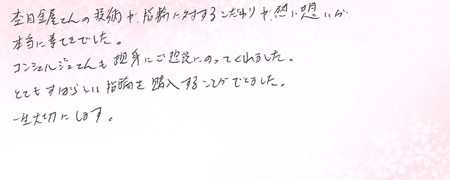 杢目金屋さんの技術や、指輪に対するこだわりや、熱い想いが
本当に素てきでした。
コンシェルジュさんも親身にご相談にのってくれました。
とてもすばらしい指輪を購入することができました。
一生大切にします。